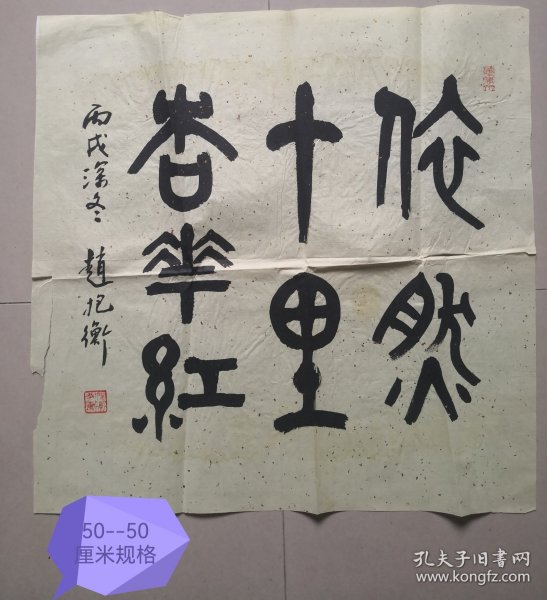 依然
十里
杏華紅
丙戌深冬 趙把衡
50--50
厘米规格
孔夫子旧书网
www.kongfz.com